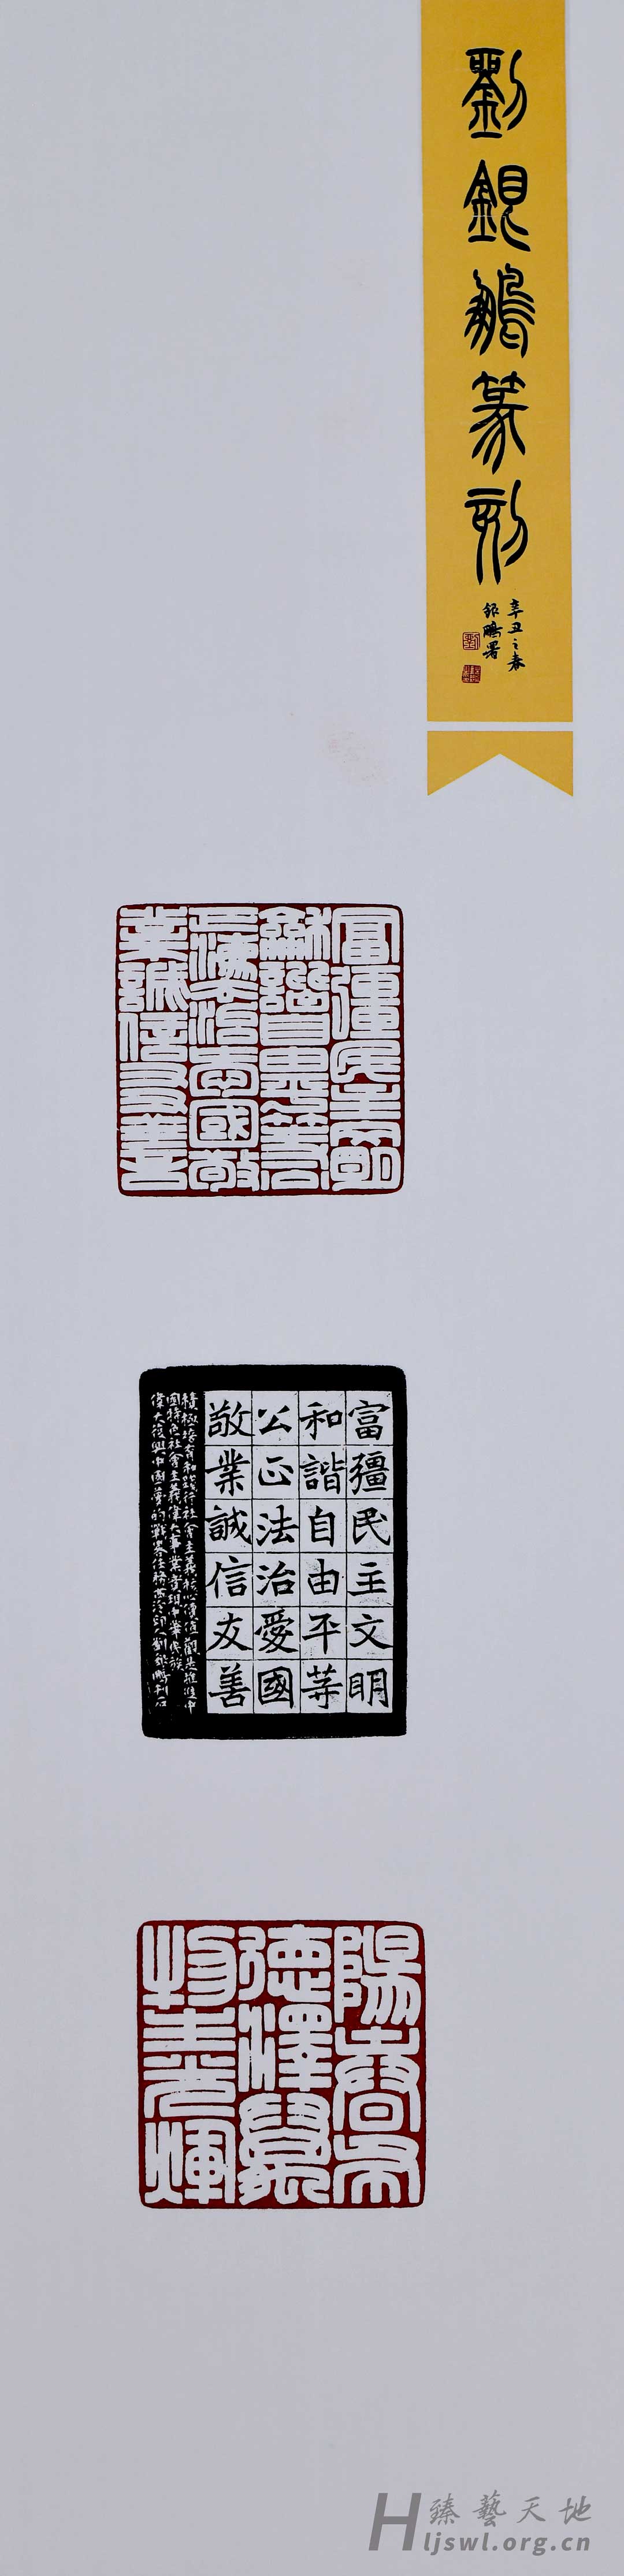 劉銀鵬篆刻
辛丑之春
銀鵬署
富彊民主文明
和諧自由平等公
正法治愛國敬
業誠信友善
富彊民主文明
和諧自由平等
公正法治愛國
敬業誠信友善
積極培育和踐行社會主義核心價值觀是推進中
國特色社會主義偉大事業實現中華民族
偉大復興中國夢的戰略任務
陽春布
德澤萬
物生光輝
臻藝天地
Hljswl.org.cn